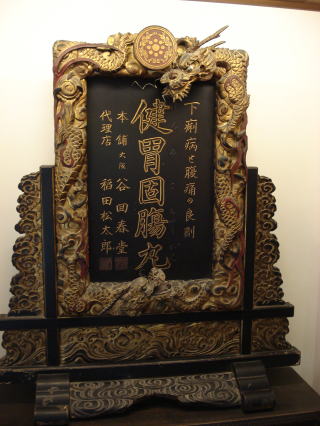 下痢病と腹痛の良剤
健胃固腸丸
本舗 大阪 谷回春堂
代理店 稲田松太郎